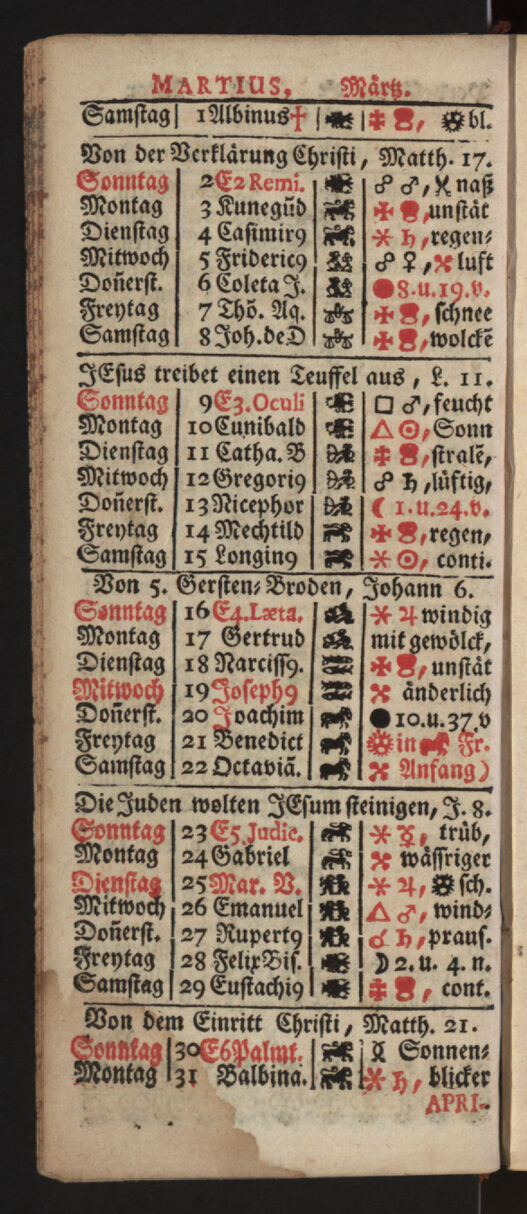 MARTIUS, Märtz.
Samstag 1 Albinus† bl.
Von der Verklärung Christi, Matth. 17.
Sonntag 2 E2 Remi. ☍ ♂, naß
Montag 3 Kunegūd unstät
Dienstag 4 Casimir9 ⚹ ♄, regen-
Mitwoch 5 Frideric9 ☍ ♀, luft
Don̄erst. 6 Coleta J. 8.u.19.v.
Freytag 7 Thō. Aq. schnee
Samstag 8 Joh.deD wolckē
JEsus treibet einen Teuffel aus, L. 11.
Sonntag 9 E3.Oculi □ ♂, feucht
Montag 10 Cunibald △ ☉, Sonn
Dienstag 11 Catha. B stralē,
Mitwoch 12 Gregori9 ☍ ♄, lüftig,
Don̄erst. 13 Nicephor ☾ 1.u.24.v.
Freytag 14 Mechtild regen,
Samstag 15 Longin9 ⚹ ☉, conti.
Von 5. Gersten-Broden, Johann 6.
Sonntag 16 E4.Læta. ⚹ ♃ windig
Montag 17 Gertrud mit gewölck,
Dienstag 18 Narciss9. unstät
Mitwoch 19 Joseph9 änderlich
Don̄erst. 20 Joachim ● 10.u.37.v
Freytag 21 Benedict in Fr.
Samstag 22 Octaviā. Anfang)
Die Juden wolten JEsum steinigen, J. 8.
Sonntag 23 E5.Judic. ⚹ ☿, trüb,
Montag 24 Gabriel wässriger
Dienstag 25 Mar. V. ⚹ ♃, sch.
Mitwoch 26 Emanuel △ ♂, wind-
Don̄erst. 27 Rupert9 ☌ ♄, praus.
Freytag 28 Felix Bis. ☽ 2.u. 4. n.
Samstag 29 Eustachi9 cont.
Von dem Einritt Christi, Matth. 21.
Sonntag 30 E6 Palmt. Sonnen-
Montag 31 Balbina. ⚹ ♄, blicker
APRI-